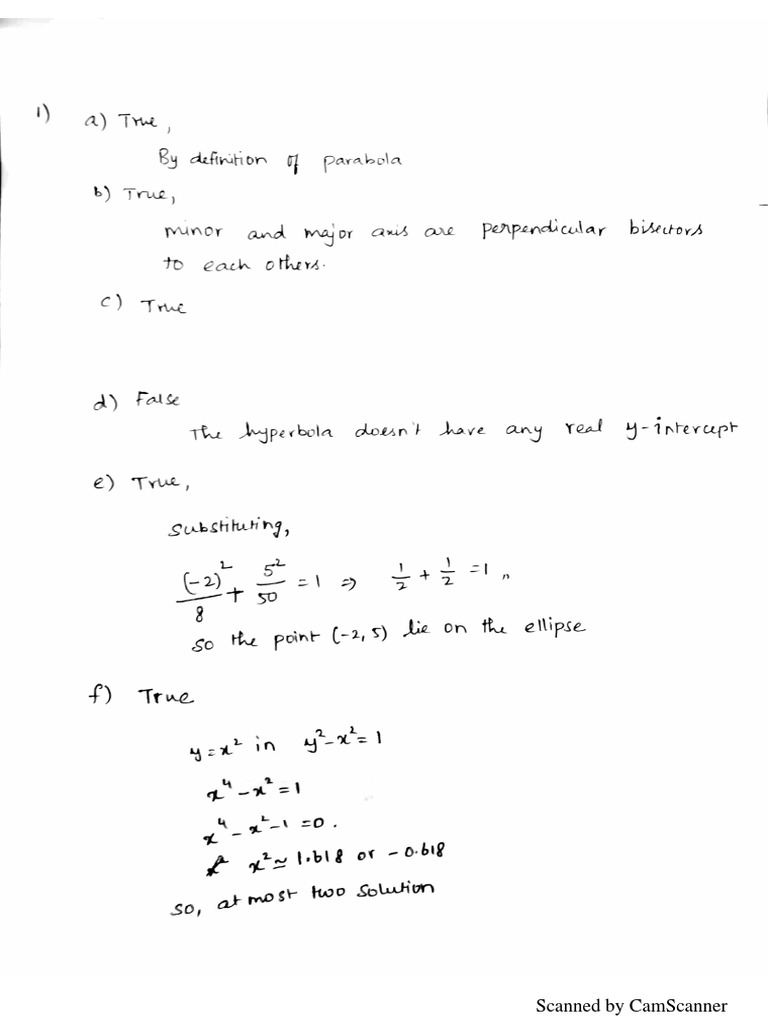 1) a) True,
By definition of parabola
b) True,
minor and major axis are perpendicular bisectors
to each others.
c) True
d) False
The hyperbola doesn't have any real y-intercept
e) True,
Substituting,
(-2)²/8 + 5²/50 = 1 ⇒ 1/2 + 1/2 = 1 "
So the point (-2, 5) lie on the ellipse
f) True
y = x² in y² - x² = 1
x⁴ - x² = 1
x⁴ - x² - 1 = 0.
x² ≃ 1.618 or - 0.618
so, at most two solution
Scanned by CamScanner